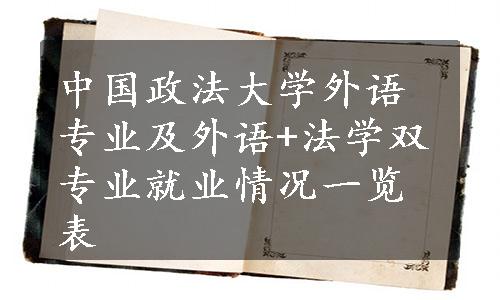 中国政法大学外语
专业及外语+法学双
专业就业情况一览
表